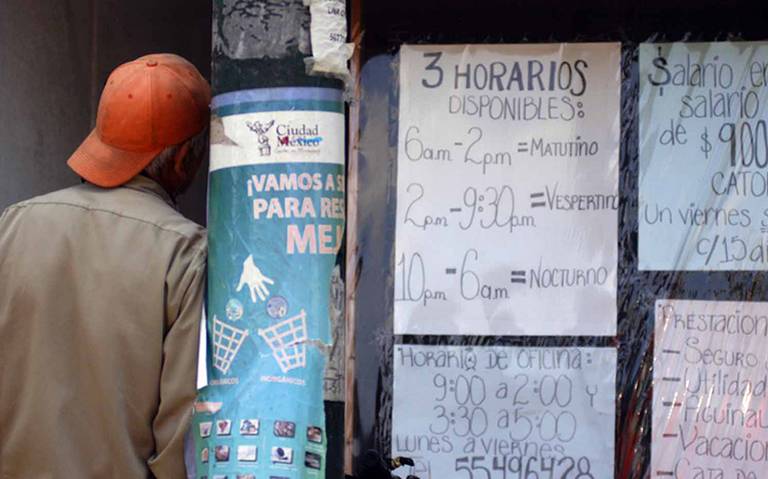 Ciudad
México
¡VAMOS A
PARA
MEJ
ORGÁNICOS
INORGÁNICOS
3 HORARIOS
DISPONIBLES:
6am-2pm=MATUTINO
2pm-9:30pm=VESPERTINO
10pm-6am=NOCTURNO
HORARIO DE OFICINA:
9:00 a 2:00 y
3:30 a 5:00
LUNES a VIERNES
Tel 55496428
Salario
salario
de $900
CATO
Un viernes
c/15
PRESTACION
- SEGURO
- Utilidad
- Aguinal
- VACACION
- CAJA DE